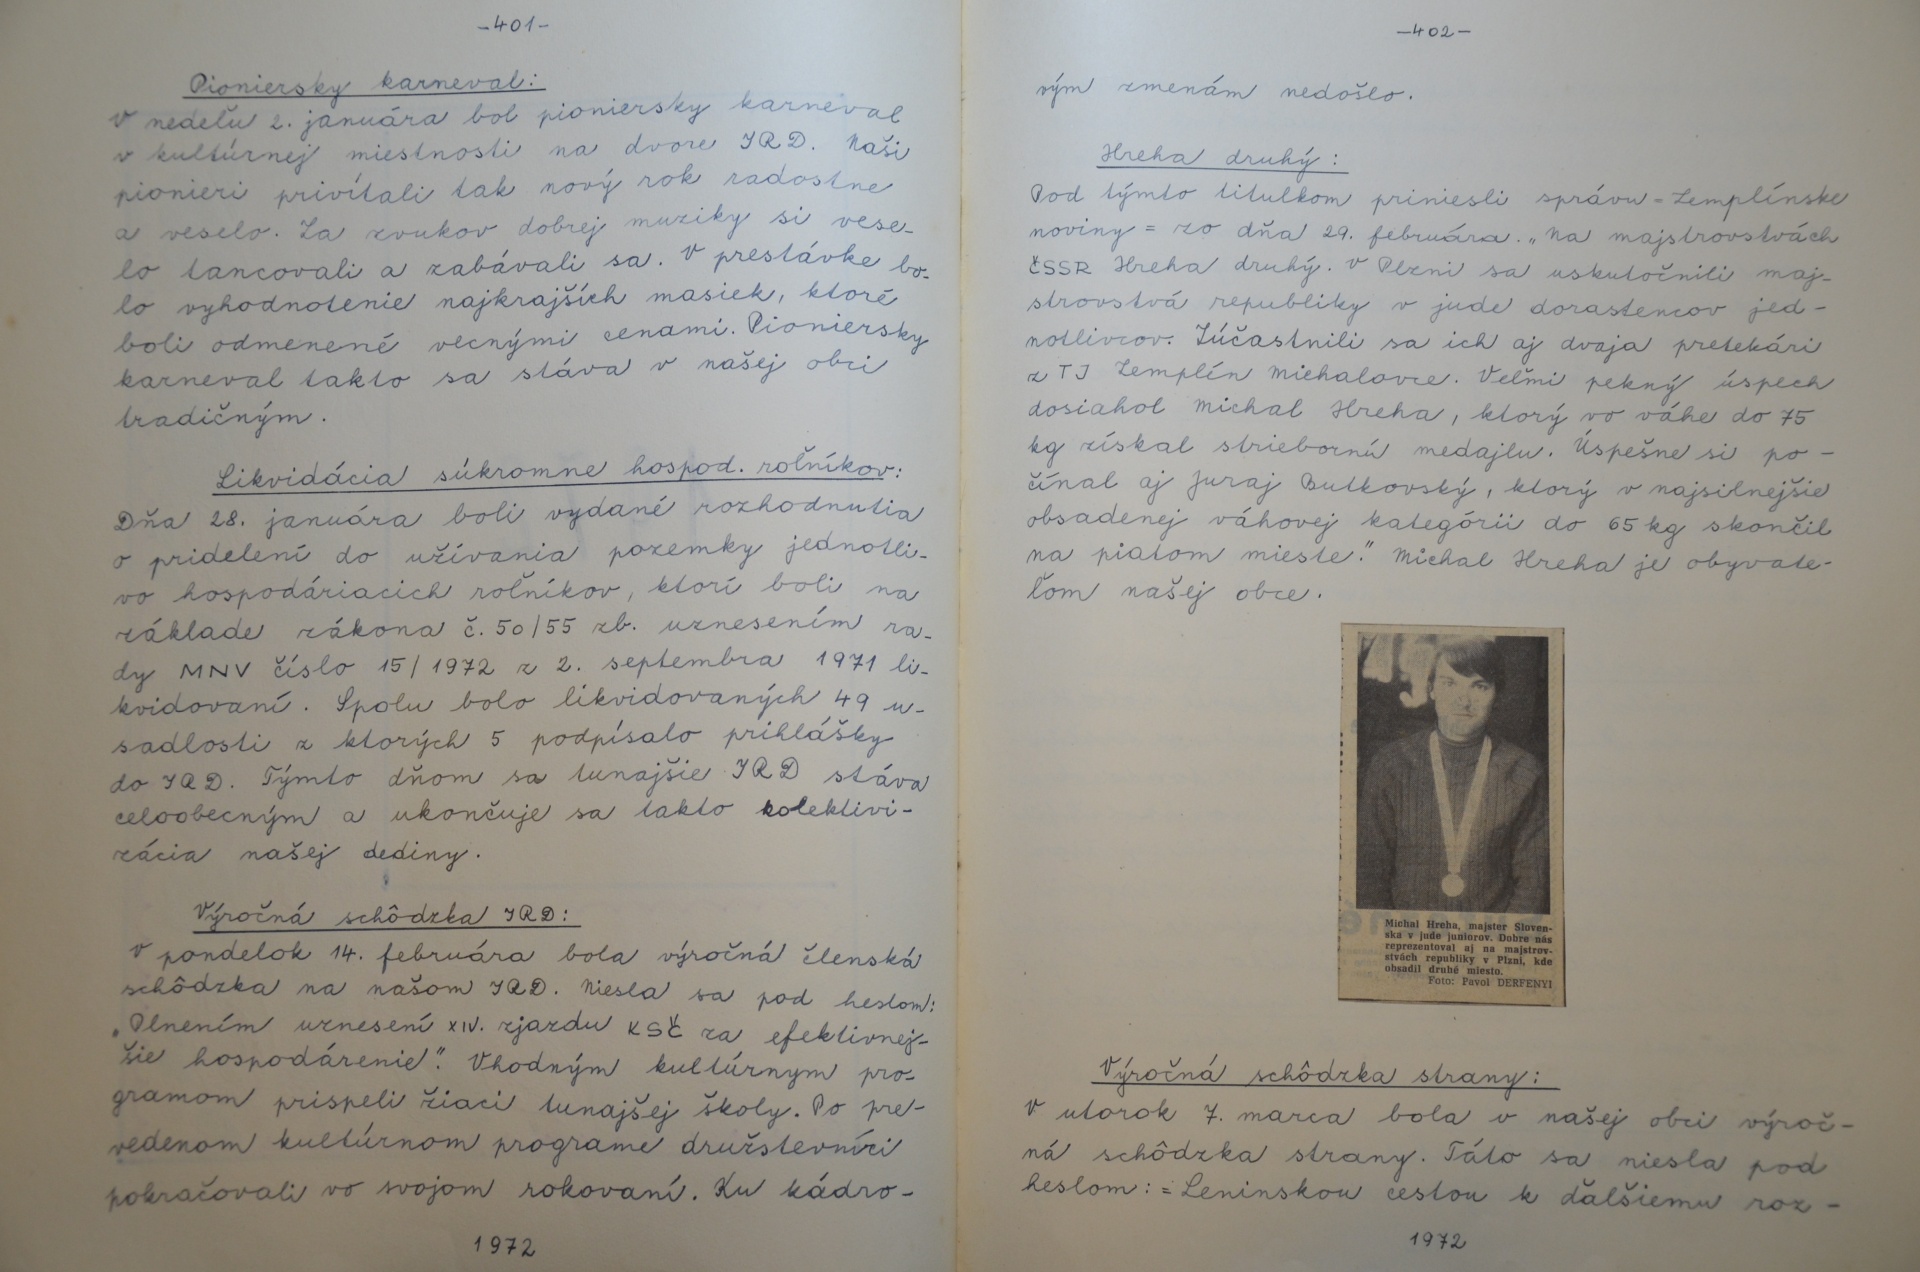 -401-
Pioniersky karneval:
V nedeľu 2. januára bol pioniersky karneval
v kultúrnej miestnosti na dvore JRD. Naši
pionieri privítali tak nový rok radostne
a veselo. Za zvukov dobrej muziky si vese-
lo tancovali a zabávali sa. V prestávke bo-
lo vyhodnotenie najkrajších masiek, ktoré
boli odmenené vecnými cenami. Pioniersky
karneval takto sa stáva v našej obci
tradičným.
Likvidácia súkromne hospod. roľníkov:
Dňa 28. januára boli vydané rozhodnutia
o pridelení do užívania pozemky jednotli-
vo hospodáriacich roľníkov, ktorí boli na
základe zákona č. 50/55 zb. uznesením ra-
dy MNV číslo 15/1972 z 2. septembra 1971 li-
kvidovaní. Spolu bolo likvidovaných 49 u-
sadlosti z ktorých 5 podpísalo prihlášky
do JRD. Týmto dňom sa tunajšie JRD stáva
celoobecným a ukončuje sa takto kolektivi-
zácia našej dediny.
Výročná schôdzka JRD:
V pondelok 14. februára bola výročná členská
schôdzka na našom JRD. Niesla sa pod heslom:
„Plnením uznesení XIV. zjazdu KSČ za efektívnej-
šie hospodárenie". Vhodným kultúrnym pro-
gramom prispeli žiaci tunajšej školy. Po pre-
vedenom kultúrnom programe družstevníci
pokračovali vo svojom rokovaní. Ku kádro-
1972
-402-
vým zmenám nedošlo.
Hreha druhý:
Pod týmto titulkom priniesli správu = Zemplínske
noviny = zo dňa 29. februára. „Na majstrovstvách
ČSSR Hreha druhý. V Plzni sa uskutočnili maj-
strovstvá republiky v jude dorastencov jed-
notlivcov. Zúčastnili sa ich aj dvaja pretekári
z TJ Zemplín Michalovce. Veľmi pekný úspech
dosiahol Michal Hreha, ktorý vo váhe do 75
kg získal striebornú medajlu. Úspešne si po-
čínal aj Juraj Butkovský, ktorý v najsilnejšie
obsadenej váhovej kategórii do 65 kg skončil
na piatom mieste." Michal Hreha je obyvate-
ľom našej obce.
Michal Hreha, majster Sloven-
ska v jude juniorov. Dobre nás
reprezentoval aj na majstrov-
stvách republiky v Plzni, kde
obsadil druhé miesto.
Foto: Pavol DERFENYI
Výročná schôdzka strany:
V utorok 7. marca bola v našej obci výroč-
ná schôdzka strany. Táto sa niesla pod
heslom: = Leninskou cestou k ďalšiemu roz-
1972